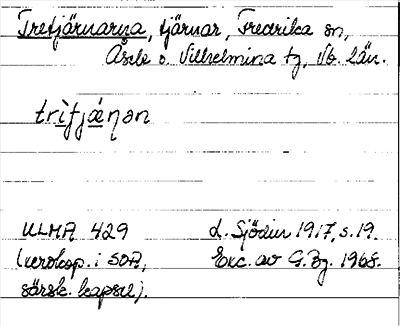 Tretjärnarna, tjärnar, Fredrika sn,
Åsele o. Vilhelmina tg, Vb. län.
trìtjǽṇən
ULMA 429 L. Sjödin 1917, s. 19.
(xerokop. i SOA, Exc. av G.Bg. 1968.
särsk. kapsel).